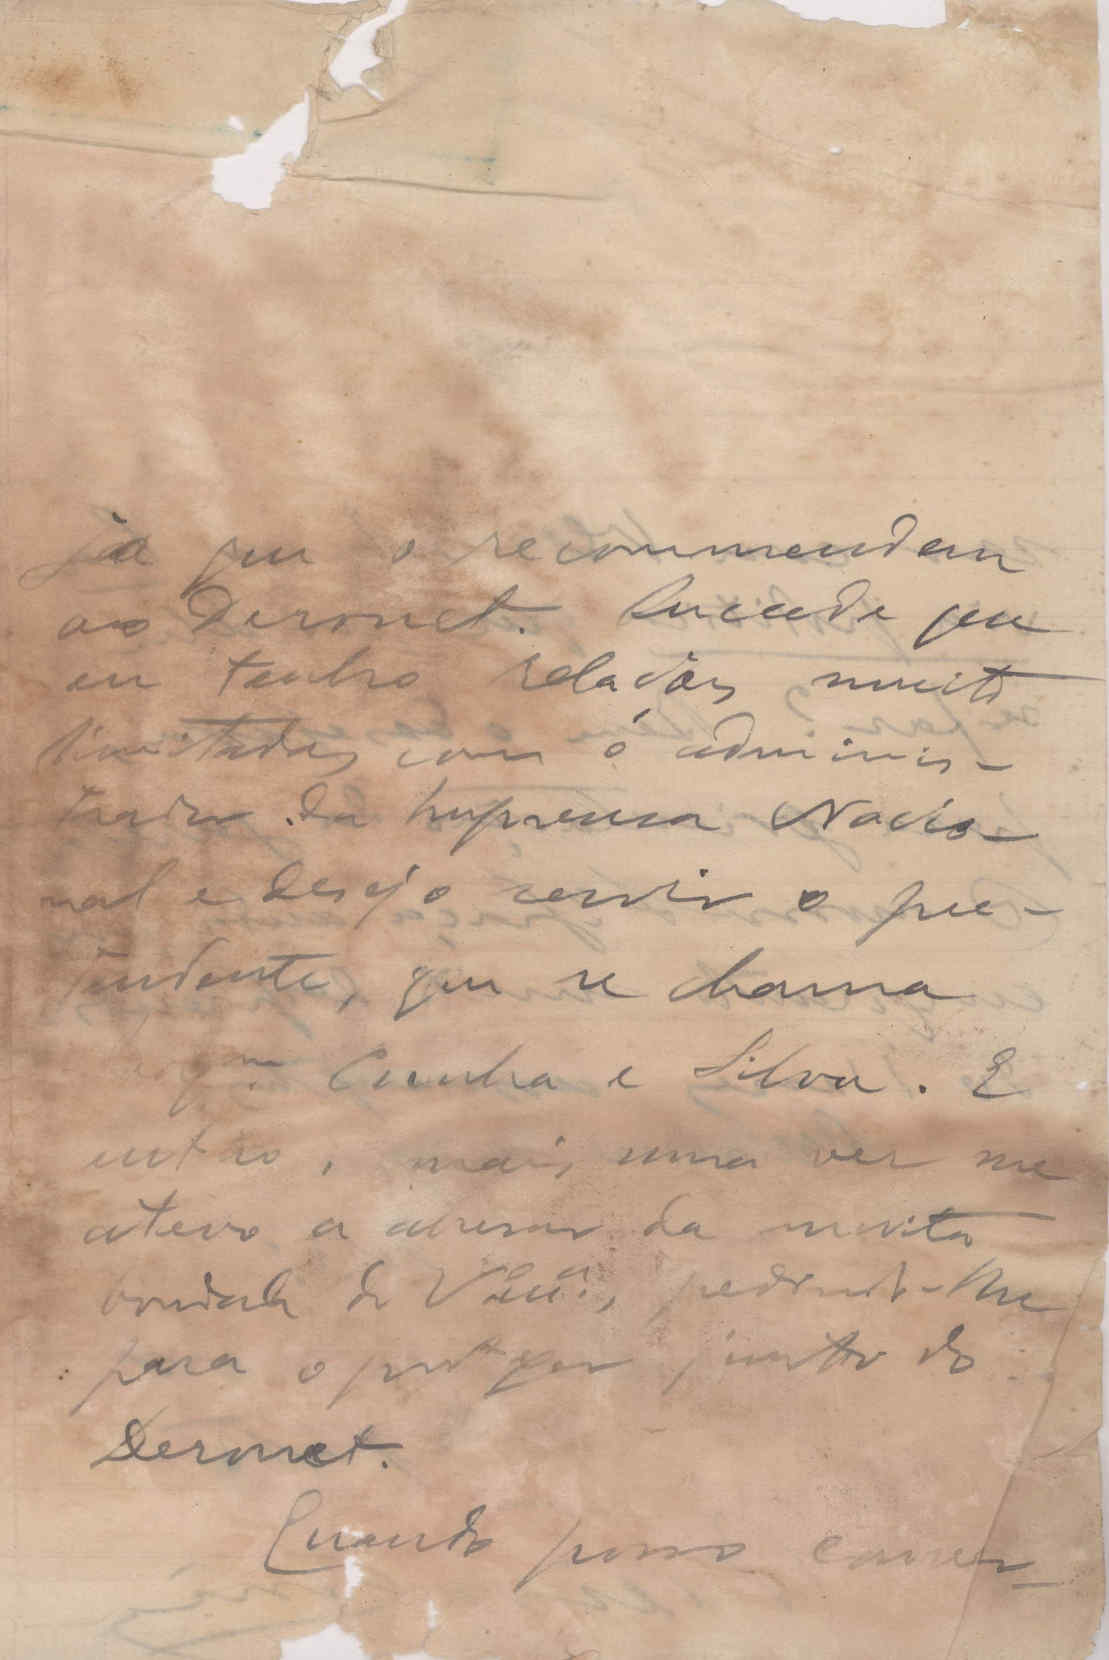 já que o recommendem
ao Derouet. Succede que
eu tenho relações muito
limitadas com o adminis-
trador da Imprensa Nacio-
nal e desejo servir o pre-
tendente, que se chama
Cunha e Silva. E
então, mais uma vez me
atrevo a abusar da muita
bondade de V. Ex.ª, pedindo-lhe
para o proteger junto do
Derouet.
Quando posso conver-